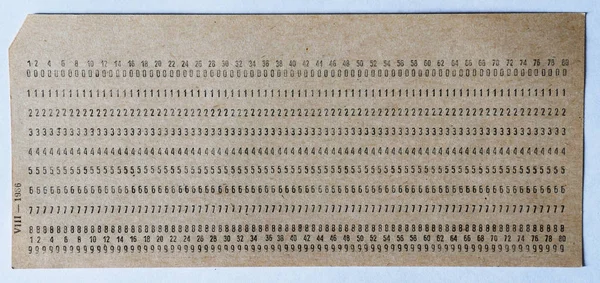 1 2 4 6 8 10 12 14 16 18 20 22 24 26 28 30 32 34 36 38 40 42 44 46 48 50 52 54 56 58 60 62 64 66 68 70 72 74 76 78 80
00000000000000000000000000000000000000000000000000000000000000000000000000000000
11111111111111111111111111111111111111111111111111111111111111111111111111111111
22222222222222222222222222222222222222222222222222222222222222222222222222222222
33333333333333333333333333333333333333333333333333333333333333333333333333333333
44444444444444444444444444444444444444444444444444444444444444444444444444444444
55555555555555555555555555555555555555555555555555555555555555555555555555555555
66666666666666666666666666666666666666666666666666666666666666666666666666666666
77777777777777777777777777777777777777777777777777777777777777777777777777777777
88888888888888888888888888888888888888888888888888888888888888888888888888888888
1 2 4 6 8 10 12 14 16 18 20 22 24 26 28 30 32 34 36 38 40 42 44 46 48 50 52 54 56 58 60 62 64 66 68 70 72 74 76 78 80
99999999999999999999999999999999999999999999999999999999999999999999999999999999
VIII — 1986